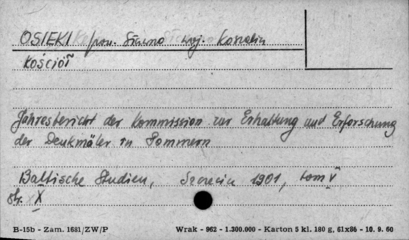 OSIEKI pow. Sławno woj. Koszalin
Kościół
Jahresbericht der Kommission zur Erhaltung und Erforschung
der Denkmäler in Pommern
Baltische Studien, Szczecin 1901, tom V
str. X
B-15b - Zam. 1681/ZW/P Wrak - 962 - 1.300.000 - Karton 5 kl. 180 g, 61x86 - 10. 9. 60